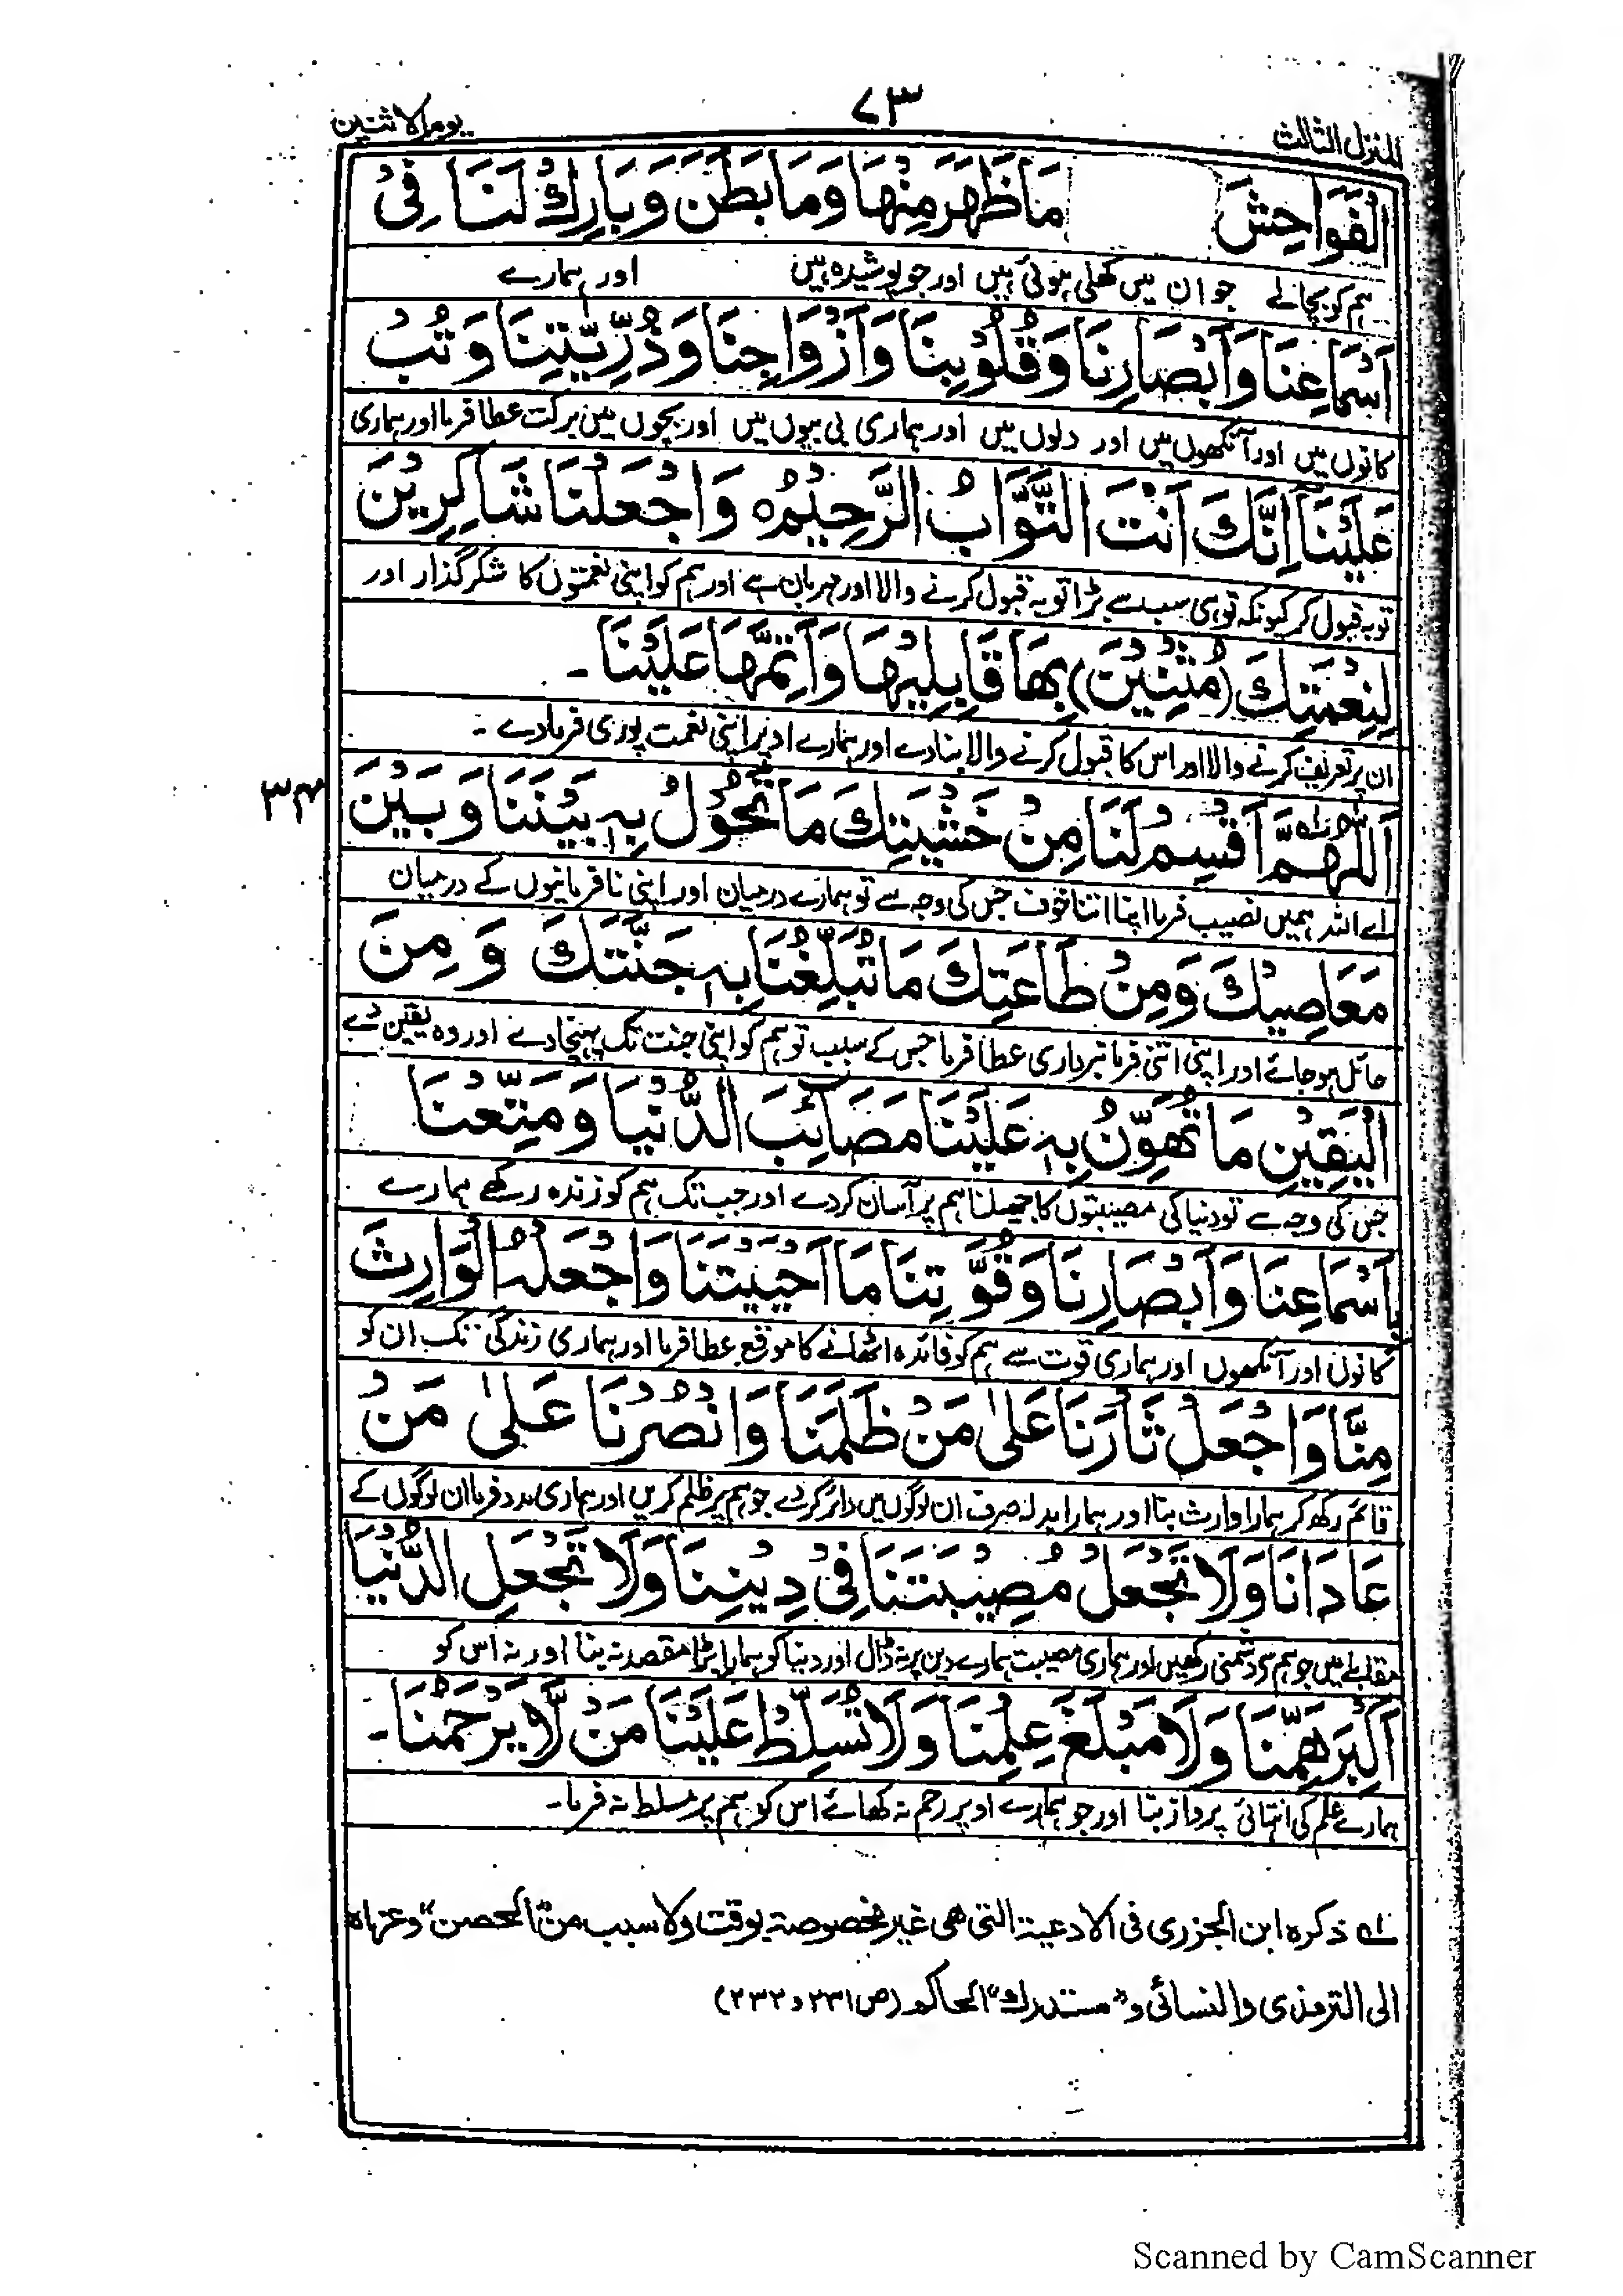 المنزل الثالث
۷۳
يوم الاثنين
الْفَوَاحِشَ مَا ظَهَرَ مِنْهَا وَمَا بَطَنَ وَبَارِكْ لَنَا فِیْ
ہم کو بچالے جو ان میں کھلی ہوئی ہیں اور جو پوشیدہ ہیں اور ہمارے
اَسْمَاعِنَا وَاَبْصَارِنَا وَقُلُوْبِنَا وَاَزْوَاجِنَا وَذُرِّيّٰتِنَا وَتُبْ
کانوں میں اور آنکھوں میں اور دلوں میں اور ہماری بی بیوں میں اور بچوں میں برکت عطا فرما اور ہماری
عَلَيْنَا اِنَّكَ اَنْتَ التَّوَّابُ الرَّحِيْمُ ہ وَاجْعَلْنَا شَاكِرِيْنَ
توبہ قبول کر کیونکہ تو ہی سب سے بڑا توبہ قبول کرنے والا اور مہربان ہے اور ہم کو اپنی نعمتوں کا شکر گذار اور
لِنِعْمَتِكَ (مُثْنِيْنَ) بِهَا قَابِلِيْهَا وَاَتِمَّهَا عَلَيْنَا ۔
ان پر تعریف کرنے والا اور اس کا قبول کرنے والا بنادے اور ہمارے اوپر اپنی نعمت پوری فرمادے ۔
۳۴
اَللّٰهُمَّ اقْسِمْ لَنَا مِنْ خَشْيَتِكَ مَا تَحُوْلُ بِهٖ بَيْنَنَا وَبَيْنَ
اے اللہ ہمیں نصیب فرما اپنا اتنا خوف جس کی وجہ سے تو ہمارے درمیان اور اپنی نافرمانیوں کے درمیان
مَعَاصِيْكَ وَمِنْ طَاعَتِكَ مَا تُبَلِّغُنَا بِهٖ جَنَّتَكَ وَمِنَ
حائل ہو جائے اور اپنی اتنی فرمانبرداری عطا فرما جس کے سبب تو ہم کو اپنی جنت تک پہنچادے اور وہ یقین دے
الْيَقِيْنِ مَا تُهَوِّنُ بِهٖ عَلَيْنَا مَصَائِبَ الدُّنْيَا وَمَتِّعْنَا
جس کی وجہ سے تو دنیا کی مصیبتوں کا جھیلنا ہم پر آسان کردے اور جب تک ہم کو زندہ رکھے ہمارے
بِاَسْمَاعِنَا وَاَبْصَارِنَا وَقُوَّتِنَا مَا اَحْيَيْتَنَا وَاجْعَلْهُ الْوَارِثَ
کانوں اور آنکھوں اور ہماری قوت سے ہم کو فائدہ اٹھانے کا موقع عطا فرما اور ہماری زندگی تک ان کو
مِنَّا وَاجْعَلْ ثَارَنَا عَلٰى مَنْ ظَلَمَنَا وَانْصُرْنَا عَلٰى مَنْ
قائم رکھ کر ہمارا وارث بنا اور ہمارا بدلہ صرف ان لوگوں میں دائر کر دے جو ہم پر ظلم کریں اور ہماری مدد فرما ان لوگوں کے
عَادَانَا وَلَا تَجْعَلْ مُصِيْبَتَنَا فِیْ دِيْنِنَا وَلَا تَجْعَلِ الدُّنْيَا
مقابلے میں جو ہم سے دشمنی رکھیں اور ہماری مصیبت ہمارے دین پر نہ ڈال اور دنیا کو ہمارا بڑا مقصد نہ بنا اور نہ اس کو
اَكْبَرَ هَمِّنَا وَلَا مَبْلَغَ عِلْمِنَا وَلَا تُسَلِّطْ عَلَيْنَا مَنْ لَّا يَرْحَمُنَا ۔
ہمارے علم کی انتہائی پرواز بنا اور جو ہمارے اوپر رحم نہ کھائے اس کو ہم پر مسلط نہ فرما۔
لـه ذكره ابن الجزرى فى الادعية التى هى غير مخصوصة بوقت ولا سبب من "الحصن" وعزاه
الى الترمذى والنسائى و"مستدرك" الحاكم (ص ۲۳۱ و ۲۳۲)
Scanned by CamScanner